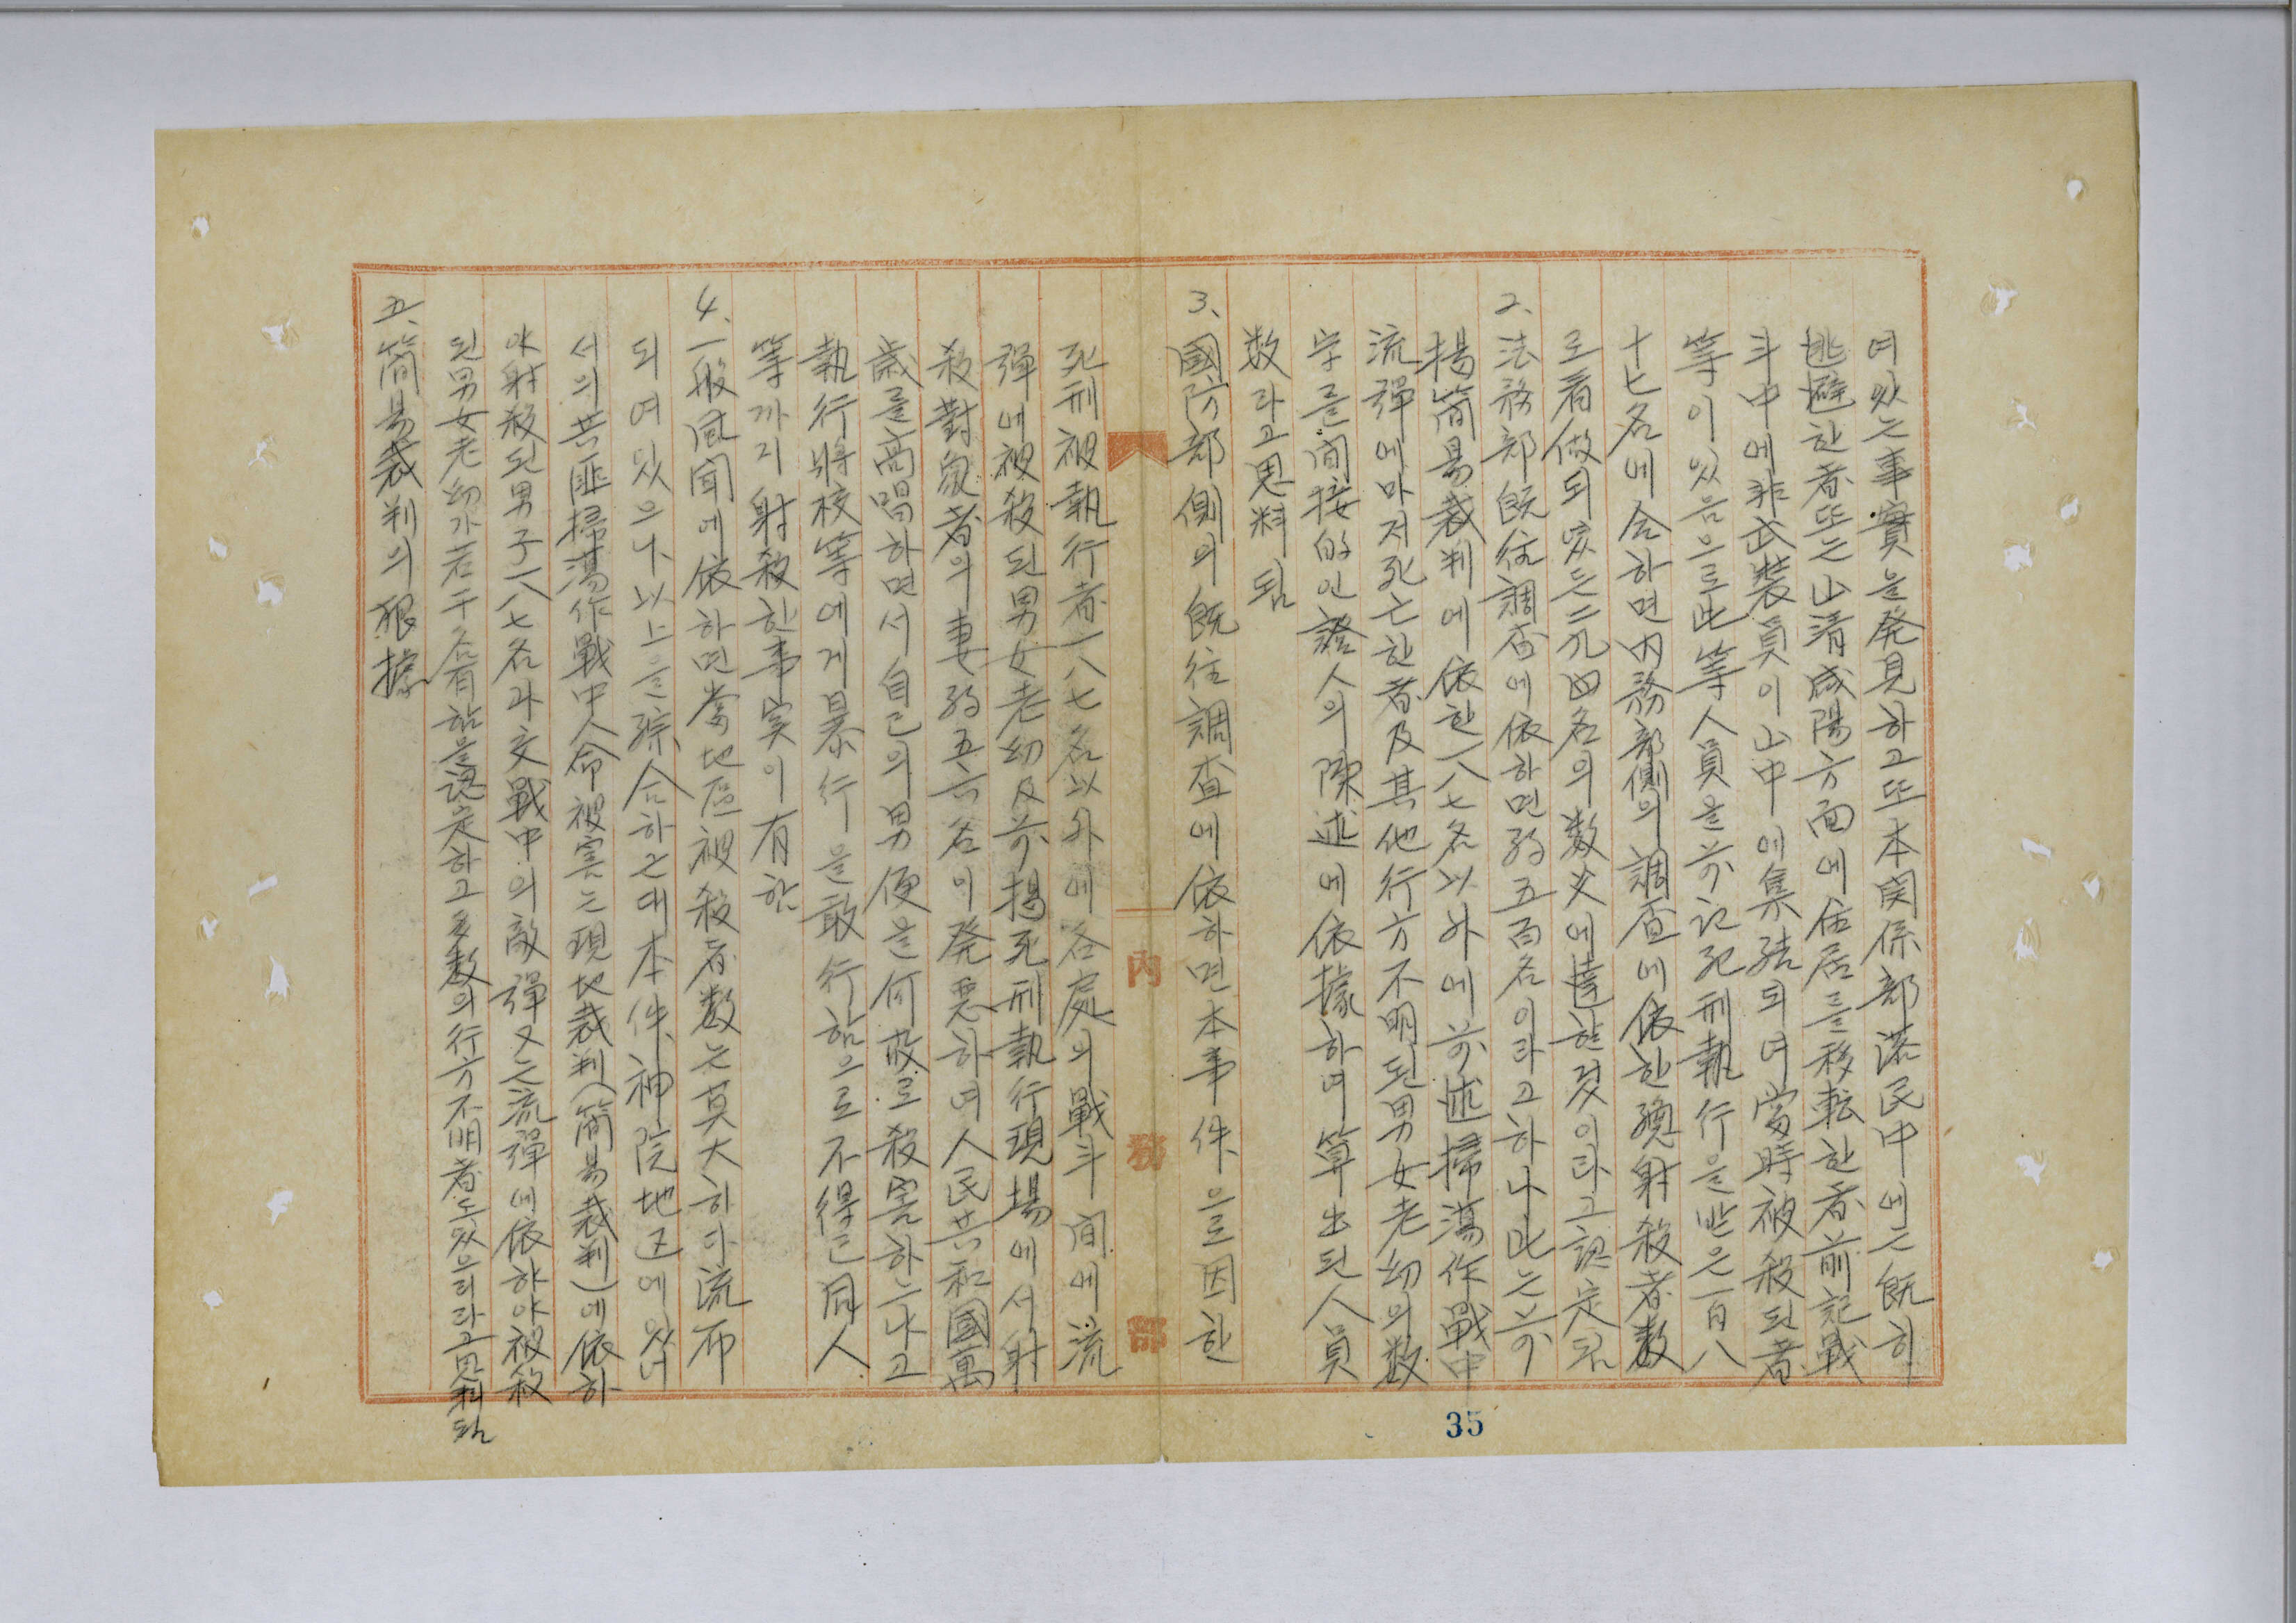 여있는事實을発見하고또本関係部落民中에는既히
逃避한者또는山淸咸陽方面에住居를移転한者前記戰
斗中에非武裝員이山中에集結되여當時被殺된者
等이있음으로此等人員을前記死刑執行을받은一百八
十七名에合하면內務部側의調査에依한總射殺者數
로看做되얏든二九四名의数爻에達한것이라고認定됨
2、法務部既往調査에依하면約五百名이라고하나此는前
揭簡易裁判에依한一八七名以外에前述掃蕩作戰中
流彈에마저死亡한者及其他行方不明된男女老幼의数
字를间接的인證人의陳述에依據하여算出된人員
数라고思料됨
3、國防部側의既往調査에依하면本事件으로因한
死刑被執行者一八七名以外에各處의戰斗间에流
彈에被殺된男女老幼及前揭死刑執行現場에서射
殺對象者의妻約五六名이発惡하여人民共和國萬
歲를高唱하면서自己의男便을何故로殺害하느냐고
執行將校等에게暴行을敢行함으로不得已同人
等까지射殺한事実이有함
4、一般風聞에依하면當地區被殺者數는莫大하다流布
되여있으나以上을綜合하는대本件神院地区에있어
서의共匪掃蕩作戰中人命被害는現地裁判(簡易裁判)에依하
야射殺된男子一八七名과交戰中의敵彈又는流彈에依하야被殺
된男女老幼가若干名有함을認定하고多數의行方不明者도있으리라고思料됨
五、簡易裁判의根據
內務部
35